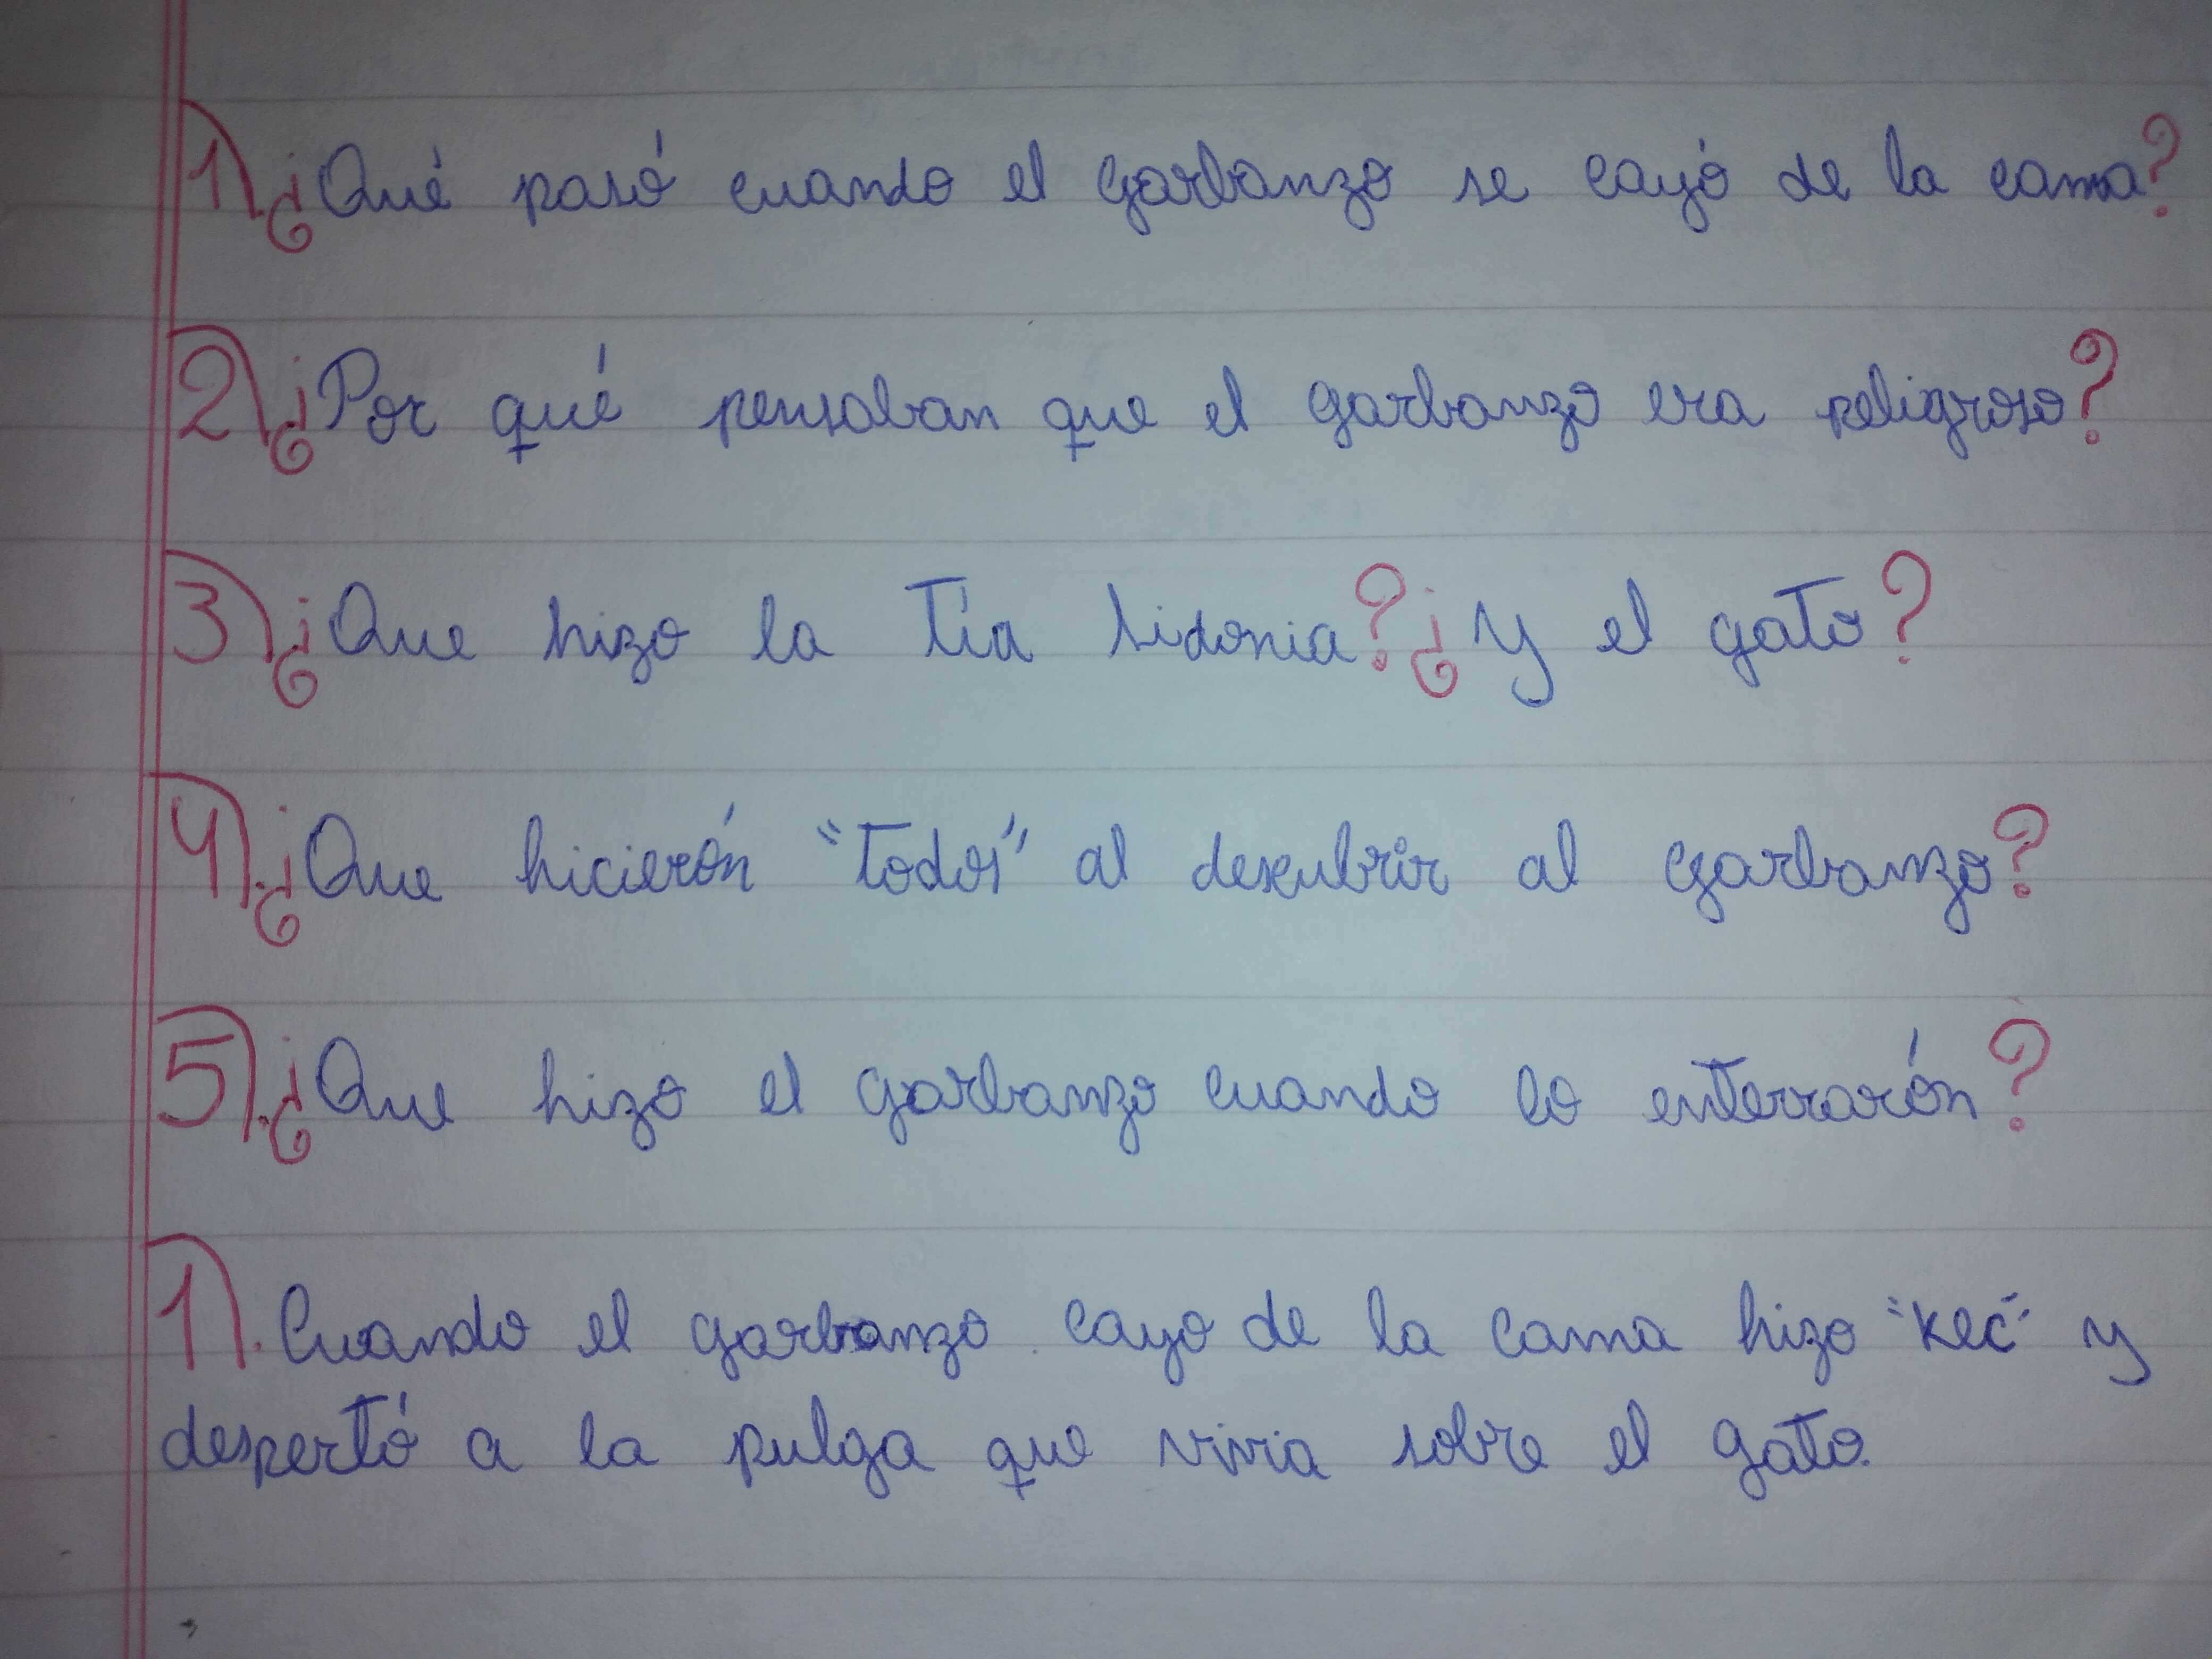 1). ¿Qué pasó cuando el garbanzo se cayó de la cama?
2) ¿Por qué pensaban que el garbanzo era peligroso?
3) ¿Que hizo la tía Sidonia? ¿Y el gato?
4). ¿Que hicierón "todos" al descubrir al garbanzo?
5). ¿Que hizo el garbanzo cuando lo enterrarón?
1). Cuando el garbanzo cayo de la cama hizo "kec" y
despertó a la pulga que vivia sobre el gato.